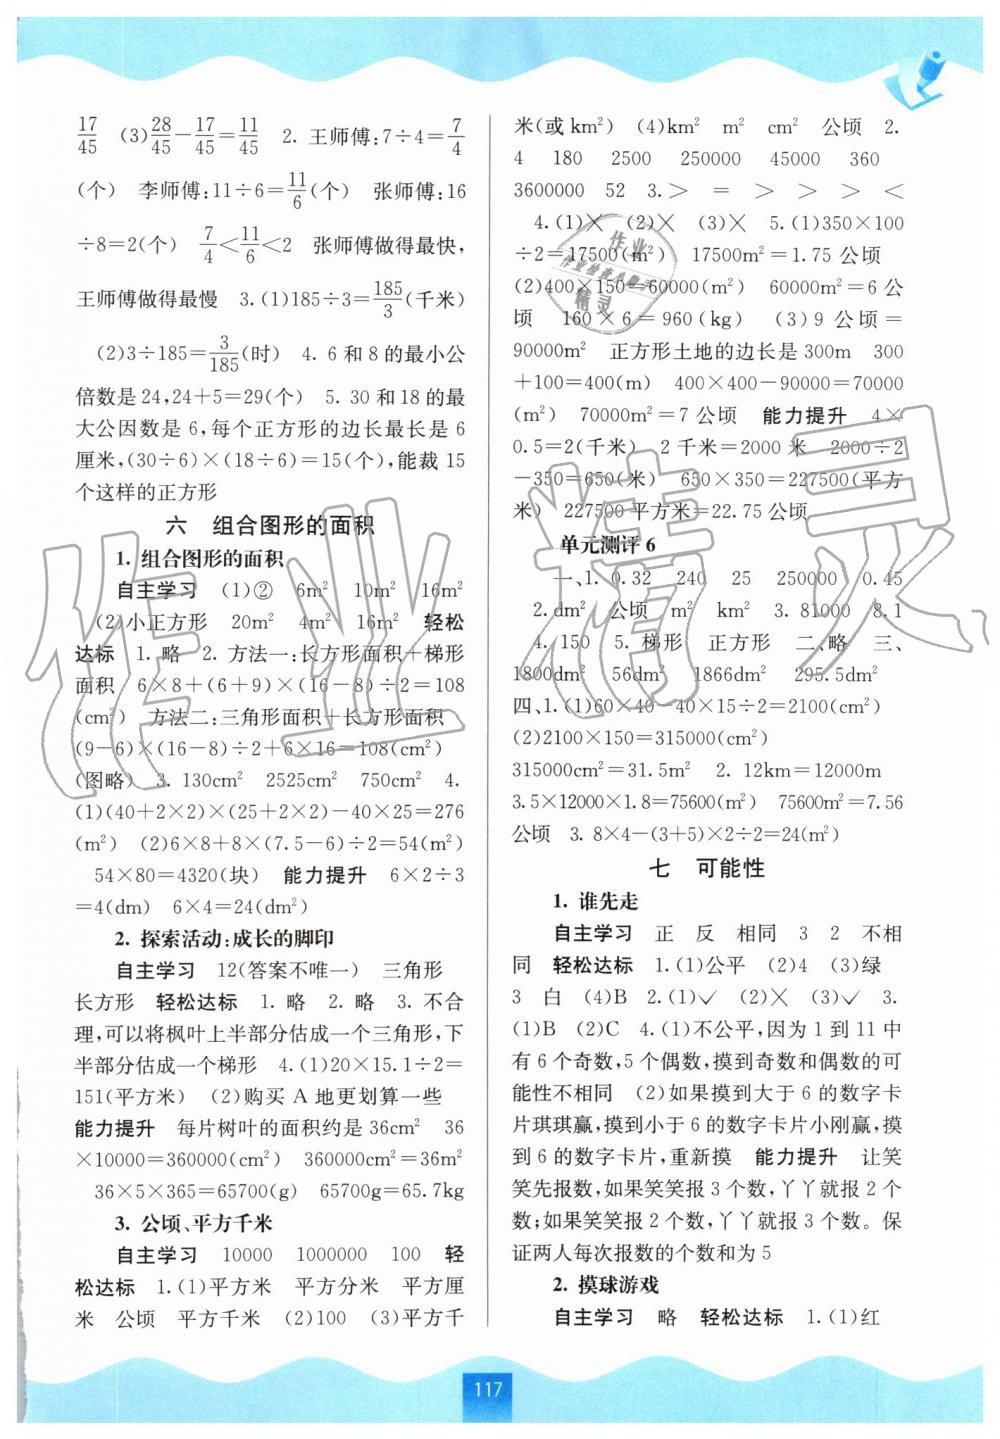 17/45 (3)28/45－17/45＝11/45 2. 王师傅:7÷4＝7/4
(个) 李师傅:11÷6＝11/6(个) 张师傅:16
÷8＝2(个) 7/4＜11/6＜2 张师傅做得最快,
王师傅做得最慢 3.(1)185÷3＝185/3(千米)
(2)3÷185＝3/185(时) 4. 6和8的最小公
倍数是24,24＋5＝29(个) 5. 30和18的最
大公因数是6,每个正方形的边长最长是6
厘米,(30÷6)×(18÷6)＝15(个),能裁15
个这样的正方形
六 组合图形的面积
1. 组合图形的面积
自主学习 (1)② 6m² 10m² 16m²
(2)小正方形 20m² 4m² 16m² 轻松
达标 1. 略 2. 方法一:长方形面积＋梯形
面积 6×8＋(6＋9)×(16－8)÷2＝108
(cm²) 方法二:三角形面积＋长方形面积
(9－6)×(16－8)÷2＋6×16＝108(cm²)
(图略) 3. 130cm² 2525cm² 750cm² 4.
(1)(40＋2×2)×(25＋2×2)－40×25＝276
(m²) (2)6×8＋8×(7.5－6)÷2＝54(m²)
54×80＝4320(块) 能力提升 6×2÷3
＝4(dm) 6×4＝24(dm²)
2. 探索活动:成长的脚印
自主学习 12(答案不唯一) 三角形
长方形 轻松达标 1. 略 2. 略 3. 不合
理,可以将枫叶上半部分估成一个三角形,下
半部分估成一个梯形 4.(1)20×15.1÷2＝
151(平方米) (2)购买A地更划算一些
能力提升 每片树叶的面积约是36cm² 36
×10000＝360000(cm²) 360000cm²＝36m²
36×5×365＝65700(g) 65700g＝65.7kg
3. 公顷、平方千米
自主学习 10000 1000000 100 轻
松达标 1.(1)平方米 平方分米 平方厘
米 公顷 平方千米 (2)100 (3)平方千
米(或km²) (4)km² m² cm² 公顷 2.
4 180 2500 250000 45000 360
3600000 52 3.＞ ＝ ＞ ＞ ＞ ＜
4.(1)× (2)× (3)× 5.(1)350×100
÷2＝17500(m²) 17500m²＝1.75公顷
(2)400×150＝60000(m²) 60000m²＝6公
顷 160×6＝960(kg) (3)9公顷＝
90000m² 正方形土地的边长是300m 300
＋100＝400(m) 400×400－90000＝70000
(m²) 70000m²＝7公顷 能力提升 4×
0.5＝2(千米) 2千米＝2000米 2000÷2
－350＝650(米) 650×350＝227500(平方
米) 227500平方米＝22.75公顷
单元测评6
一、1. 0.32 240 25 250000 0.45
2. dm² 公顷 m² km² 3. 81000 8.1
4. 150 5. 梯形 正方形 二、略 三、
1800dm² 56dm² 1866dm² 295.5dm²
四、1.(1)60×40－40×15÷2＝2100(cm²)
(2)2100×150＝315000(cm²)
315000cm²＝31.5m² 2. 12km＝12000m
3.5×12000×1.8＝75600(m²) 75600m²＝7.56
公顷 3. 8×4－(3＋5)×2÷2＝24(m²)
七 可能性
1. 谁先走
自主学习 正 反 相同 3 2 不相
同 轻松达标 1.(1)公平 (2)4 (3)绿
3 白 (4)B 2.(1)√ (2)× (3)√ 3.
(1)B (2)C 4.(1)不公平,因为1到11中
有6个奇数,5个偶数,摸到奇数和偶数的可
能性不相同 (2)如果摸到大于6的数字卡
片琪琪赢,摸到小于6的数字卡片小刚赢,摸
到6的数字卡片,重新摸 能力提升 让笑
笑先报数,如果笑笑报3个数,丫丫就报2个
数;如果笑笑报2个数,丫丫就报3个数。保
证两人每次报数的个数和为5
2. 摸球游戏
自主学习 略 轻松达标 1.(1)红
117
作业精灵